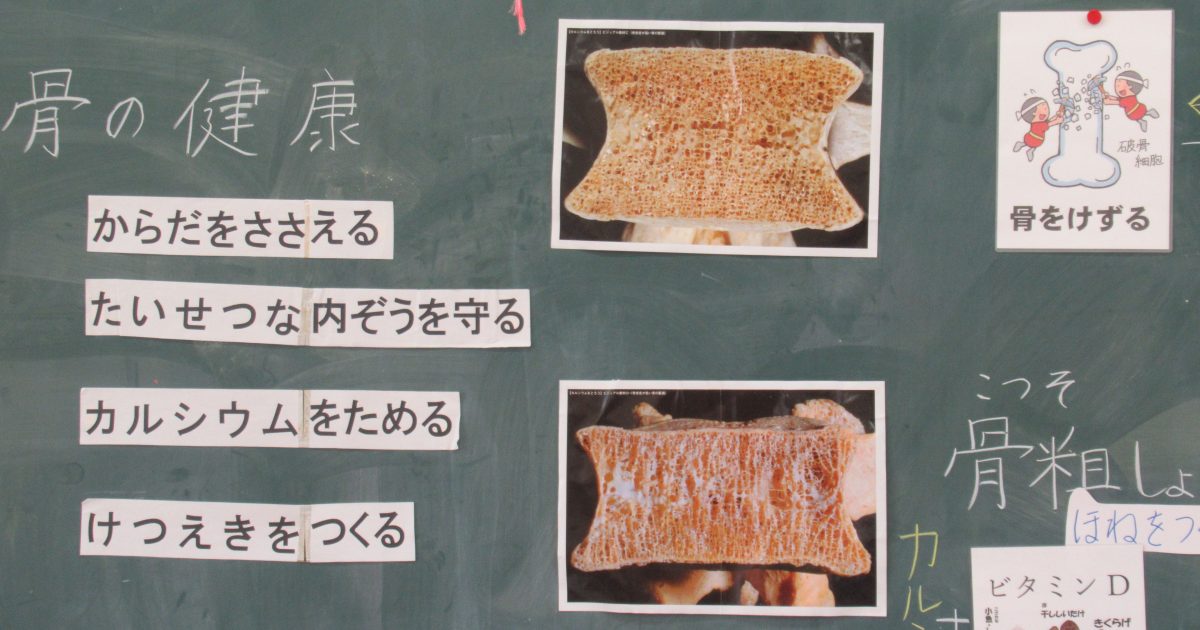 骨の健康
からだをささえる
たいせつな内ぞうを守る
カルシウムをためる
けつえきをつくる
破骨
細胞
骨をけずる
こつそ
骨粗しょ
ほねをつ
カル
ビタミンD
小魚
干ししいたけ
きくらげ